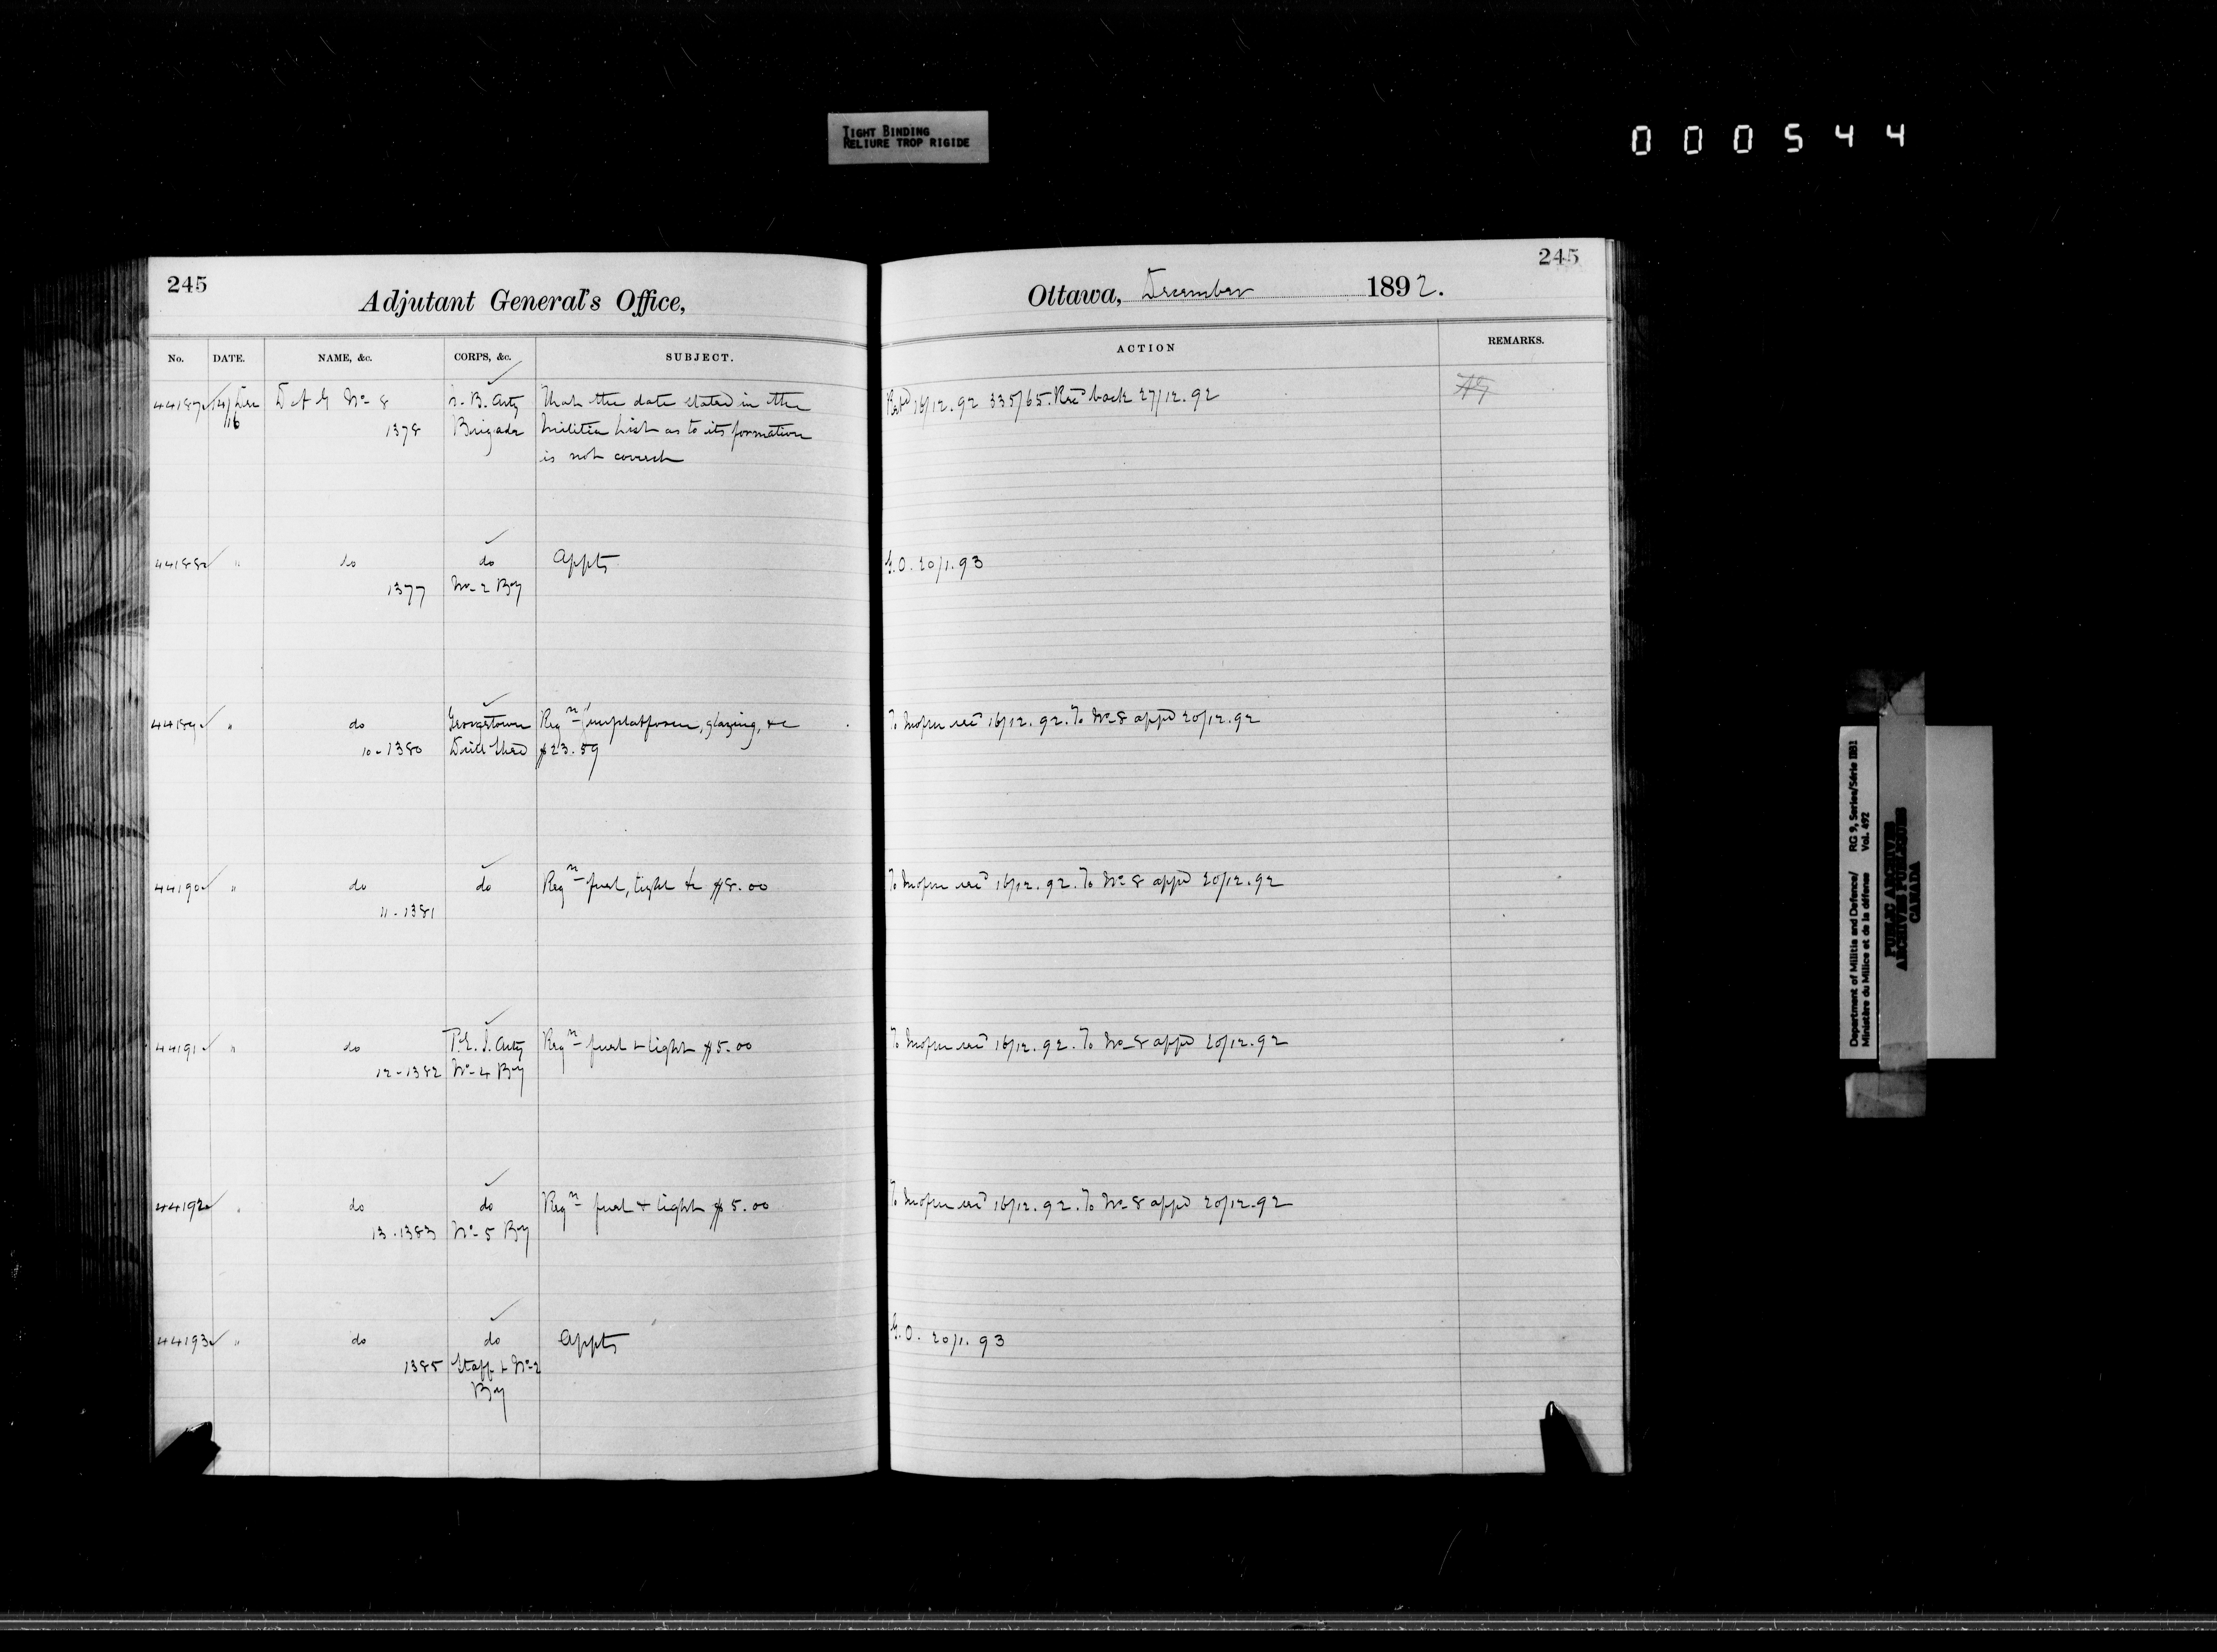 TIGHT BINDING
RELIURE TROP RIGIDE
000544
245
Adjutant General's Office,
No. DATE. NAME, &c. CORPS, &c. SUBJECT.
44187 14/Dec D A G No 8 N.B. Arty That the date stated in the
16 1378 Brigade Militia List as to its formation
is not correct
44188 " do do Appts
1377 No 2 By
44189 " do Georgetown Reqn platform, glazing, &c
10-1380 Drill Shed $23.59
44190 " do do Reqn fuel, light &c $8.00
11-1381
44191 " do P.E.I. Arty Reqn fuel + light $5.00
12-1382 No 4 By
44192 " do do Reqn fuel + light $5.00
13-1383 No 5 By
44193 " do do Appts
1385 Staff + No 2
By
245
Ottawa, December 1892.
ACTION REMARKS.
16/12.92 335/65. Recd back 27/12.92 AG
G.O. 20/1.93
To 16/12.92. To No 8 appd 20/12.92
To 16/12.92. To No 8 appd 20/12.92
To 16/12.92. To No 8 appd 20/12.92
To 16/12.92. To No 8 appd 20/12.92
G.O. 20/1.93
Department of Militia and Defence/ RG 9, Series/Série IIB1
Ministère du Milice et de la défense Vol. 492
PUBLIC ARCHIVES
ARCHIVES PUBLIQUES
CANADA